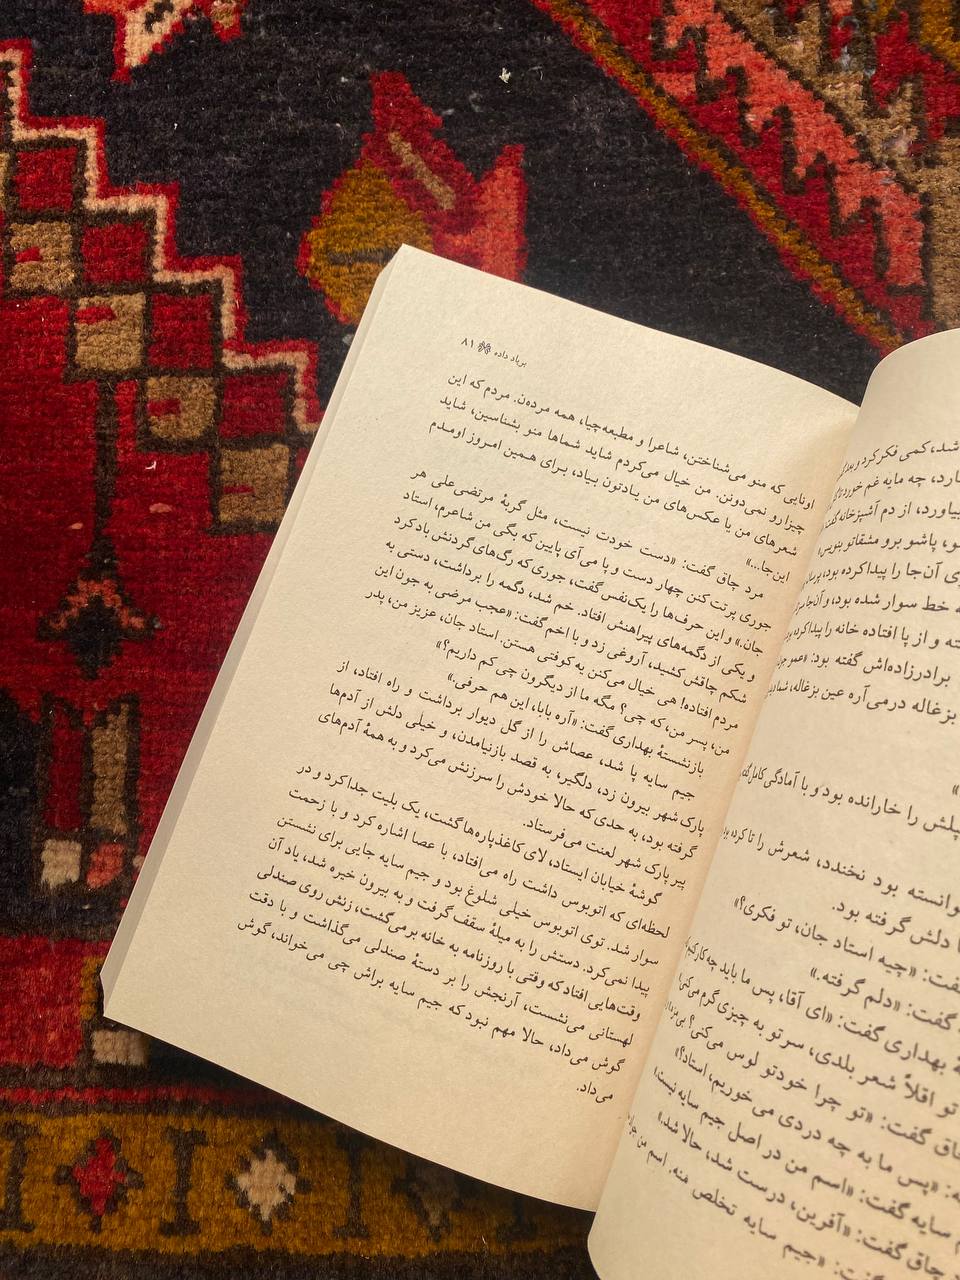 شد، کمی فکر کرد و
چه مایه غم خورد تا
بیاورد، از دم آشپزخانه گفت
پاشو برو مشقاتو بنویس
آن‌جا را پیدا کرده بود،
خط سوار شده بود، و آن‌جا
و از پا افتاده خانه را پیدا کرده
برادرزاده‌اش گفته بود:
بزغاله درمی‌آره عین بزغاله،
را خارانده بود و با آمادگی کامل
بود نخندد، شعرش را تا کرده
دلش گرفته بود.
«چیه استاد جان، تو فکری؟»
گفت: «دلم گرفته.»
بهداری گفت: «ای آقا، پس ما باید چه کار
تو اقلاً شعر بلدی، سرتو به چیزی گرم می‌کنی
گفت: «تو چرا خودتو لوس می‌کنی؟
«پس ما به چه دردی می‌خوریم، استاد؟»
سایه گفت: «اسم من در اصل جیم سایه نیست.
چاق گفت: «آفرین، درست شد، حالا شد.»
«جیم سایه تخلص منه. اسم من
برباد داده ۸۱
اونایی که منو می‌شناختن، شاعرا و مطبعه‌چیا، همه مرده‌ن. مردم که این
چیزا رو نمی‌دونن. من خیال می‌کردم شاید شماها منو بشناسین، شاید
شعرهای من یا عکس‌های من یادتون بیاد، برای همین امروز اومدم
این‌جا...»
مرد چاق گفت: «دست خودت نیست، مثل گربهٔ مرتضی‌علی هر
جوری پرتت کنن چهار دست و پا می‌آی پایین که بگی من شاعرم، استاد
جان.» و این حرف‌ها را یک‌نفس گفت، جوری که رگ‌های گردنش باد کرد
و یکی از دگمه‌های پیراهنش افتاد. خم شد، دگمه را برداشت، دستی به
شکم چاقش کشید، آروغی زد و با اخم گفت: «عجب مرضی به جون این
مردم افتاده! هی خیال می‌کنن یه کوفتی هستن. استاد جان، عزیز من، پدر
من، پسر من، که چی؟ مگه ما از دیگرون چی کم داریم؟»
بازنشستهٔ بهداری گفت: «آره بابا، این هم حرفی.»
جیم سایه پا شد، عصاش را از گل دیوار برداشت و راه افتاد، از
پارک شهر بیرون زد، دلگیر، به قصد بازنیامدن، و خیلی دلش از آدم‌ها
گرفته بود، به حدی که حالا خودش را سرزنش می‌کرد و به همهٔ آدم‌های
پیر پارک شهر لعنت می‌فرستاد.
گوشهٔ خیابان ایستاد، لای کاغذپاره‌ها گشت، یک بلیت جدا کرد و در
لحظه‌ای که اتوبوس داشت راه می‌افتاد، با عصا اشاره کرد و با زحمت
سوار شد. توی اتوبوس خیلی شلوغ بود و جیم سایه جایی برای نشستن
پیدا نمی‌کرد. دستش را به میلهٔ سقف گرفت و به بیرون خیره شد، یاد آن
وقت‌هایی افتاد که وقتی با روزنامه به خانه برمی‌گشت، زنش روی صندلی
لهستانی می‌نشست، آرنجش را بر دستهٔ صندلی می‌گذاشت و با دقت
گوش می‌داد، حالا مهم نبود که جیم سایه براش چی می خواند، گوش
می‌داد.